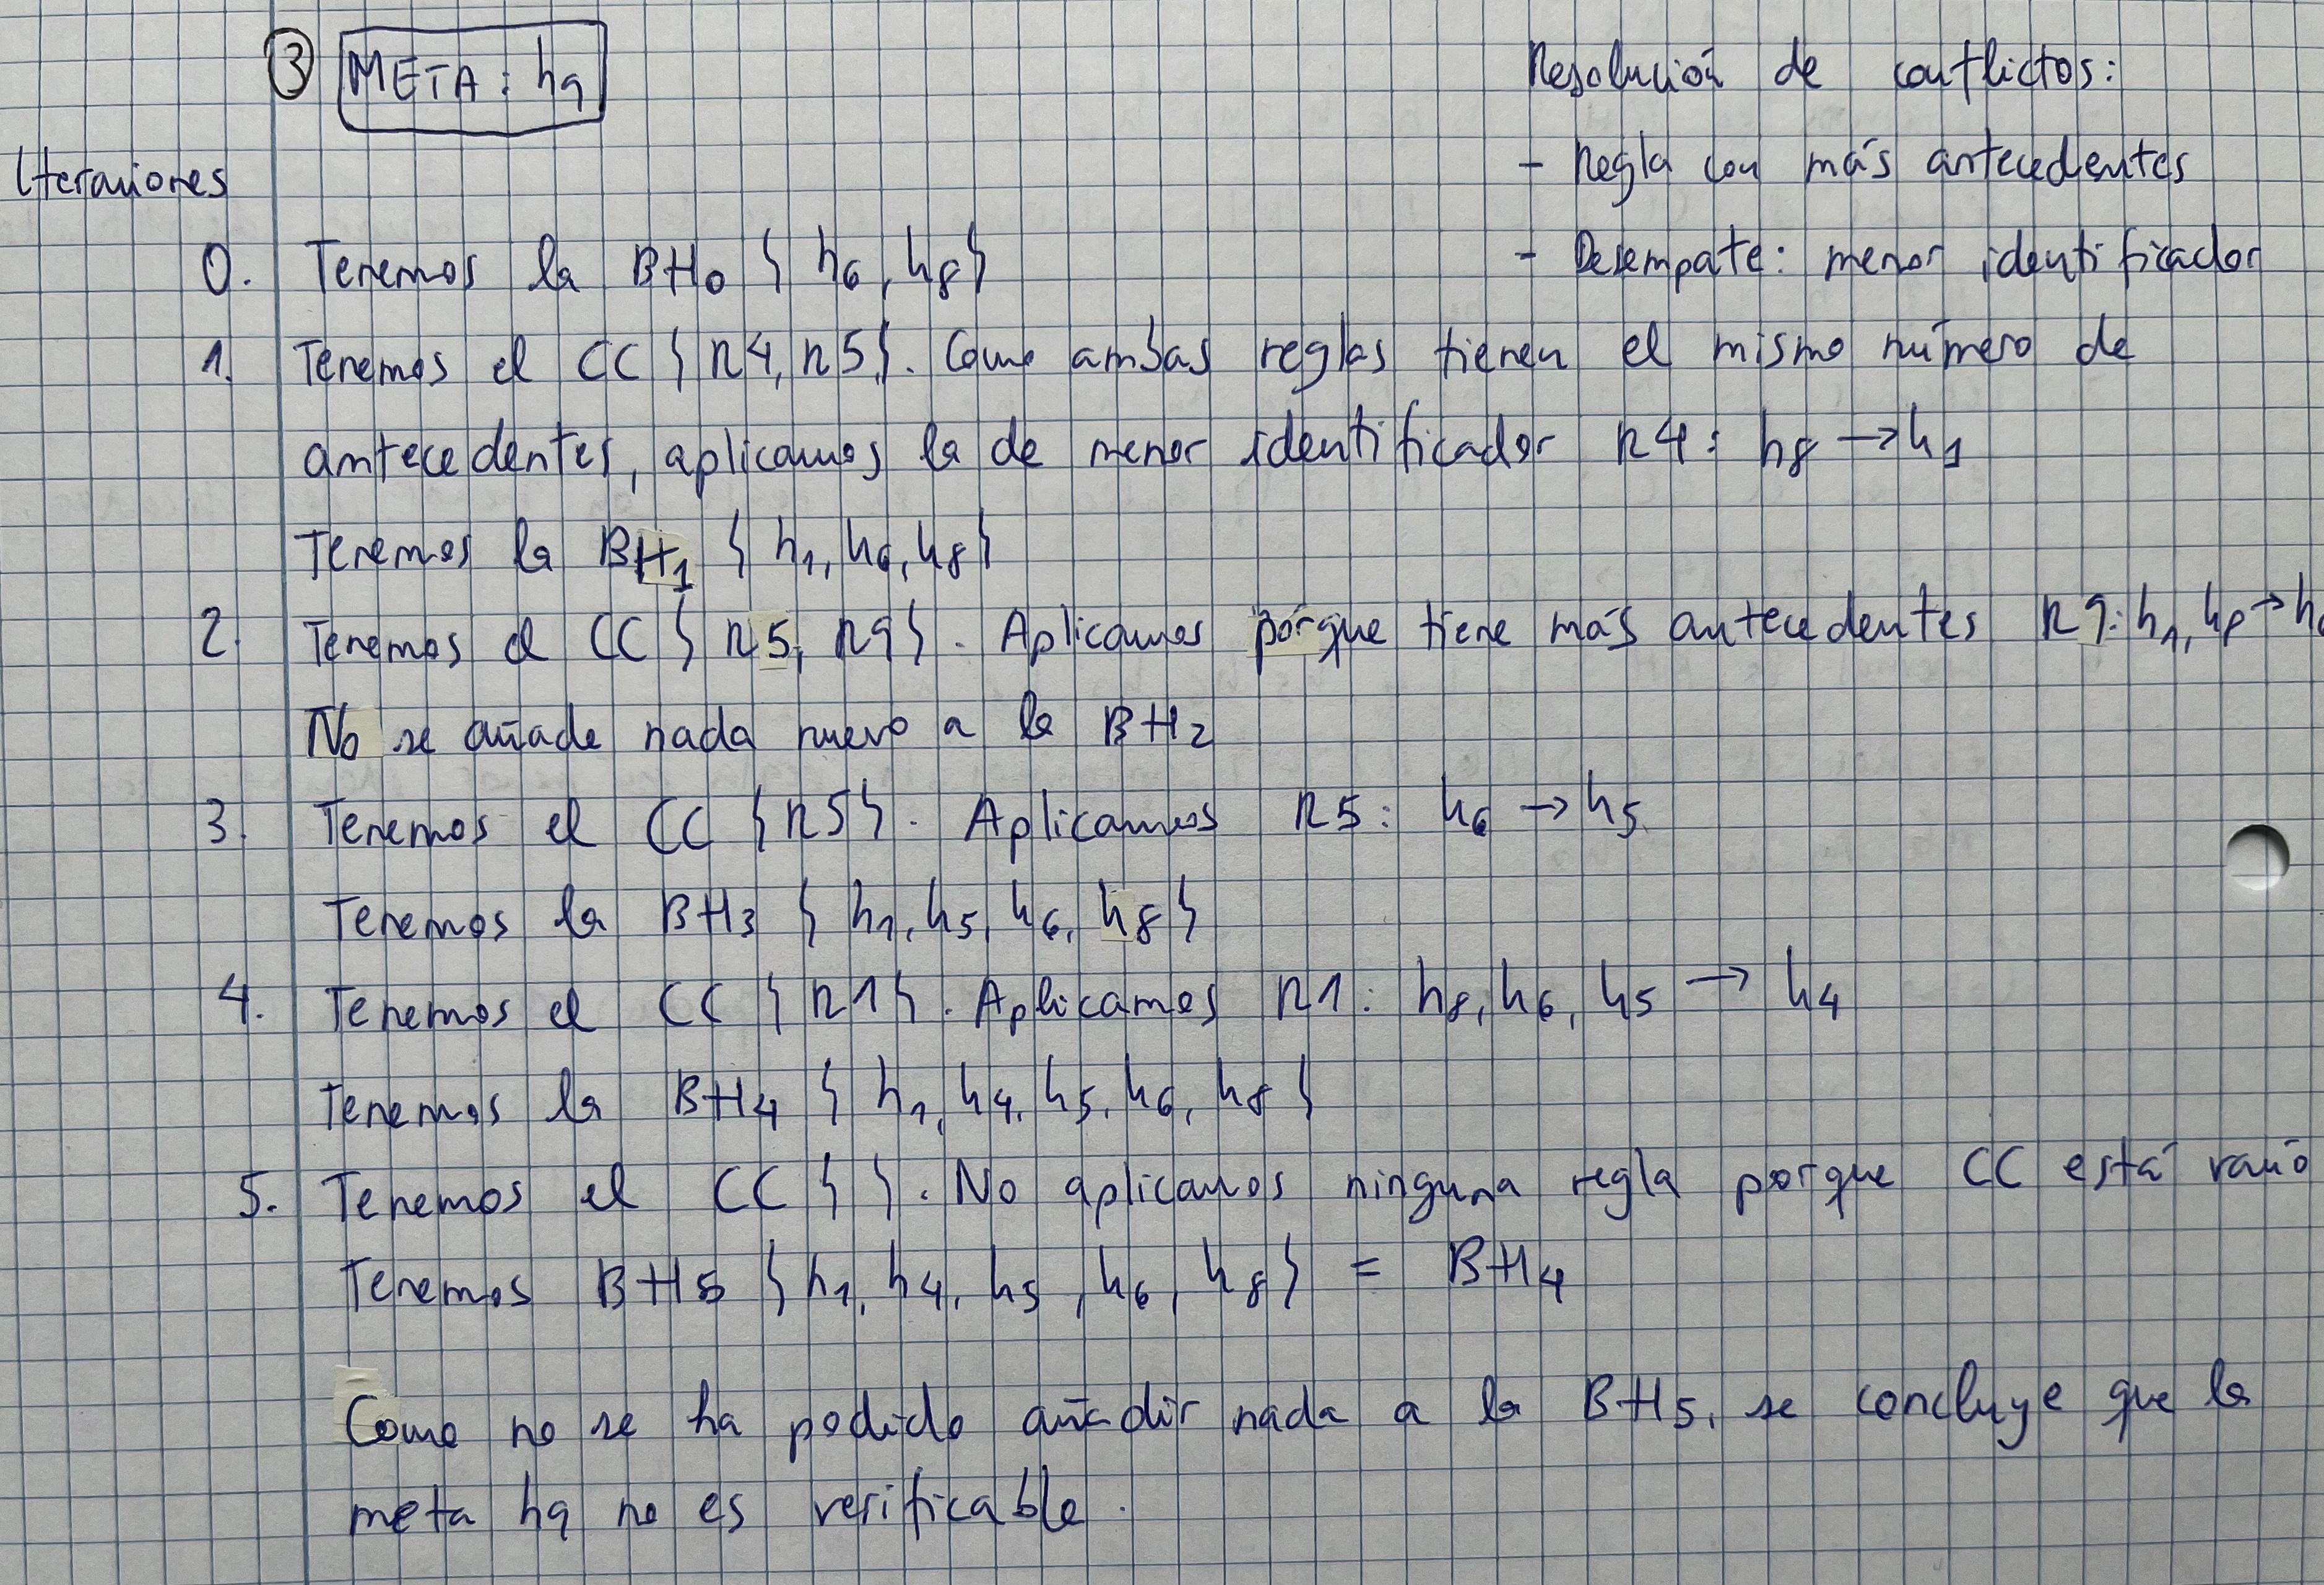 ③ META: h9
Resolución de conflictos:
- Regla con más antecedentes
- Desempate: menor identificador
Iteraciones
0. Tenemos la BH0 { h6, h8}
1. Tenemos el CC { R4, R5}. Como ambas reglas tienen el mismo número de
antecedentes, aplicamos la de menor identificador R4: h8 → h1
Tenemos la BH1 { h1, h6, h8}
2. Tenemos el CC { R5, R9}. Aplicamos porque tiene más antecedentes R9: h1, h8 → h6
No se añade nada nuevo a la BH2
3. Tenemos el CC {R5}. Aplicamos R5: h6 → h5
Tenemos la BH3 { h1, h5, h6, h8}
4. Tenemos el CC {R1}. Aplicamos R1: h8, h6, h5 → h4
Tenemos la BH4 { h1, h4, h5, h6, h8 }
5. Tenemos el CC { }. No aplicamos ninguna regla porque CC está vacío
Tenemos BH5 {h1, h4, h5, h6, h8} = BH4
Como no se ha podido añadir nada a la BH5, se concluye que la
meta h9 no es verificable.